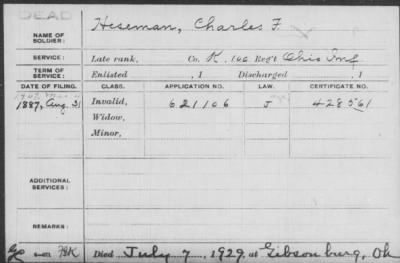 DEAD
NAME OF SOLDIER: Heseman, Charles F.
SERVICE: Late rank, Co. K, 100 Reg't Ohio Inf
TERM OF SERVICE: Enlisted , 1 Discharged , 1
DATE OF FILING. CLASS. APPLICATION NO. LAW. CERTIFICATE NO.
1887, Aug. 31 Invalid, 621106 J 428561
Widow,
Minor,
ADDITIONAL SERVICES:
REMARKS:
Died July 7, 1929, at Gibsonburg, Oh